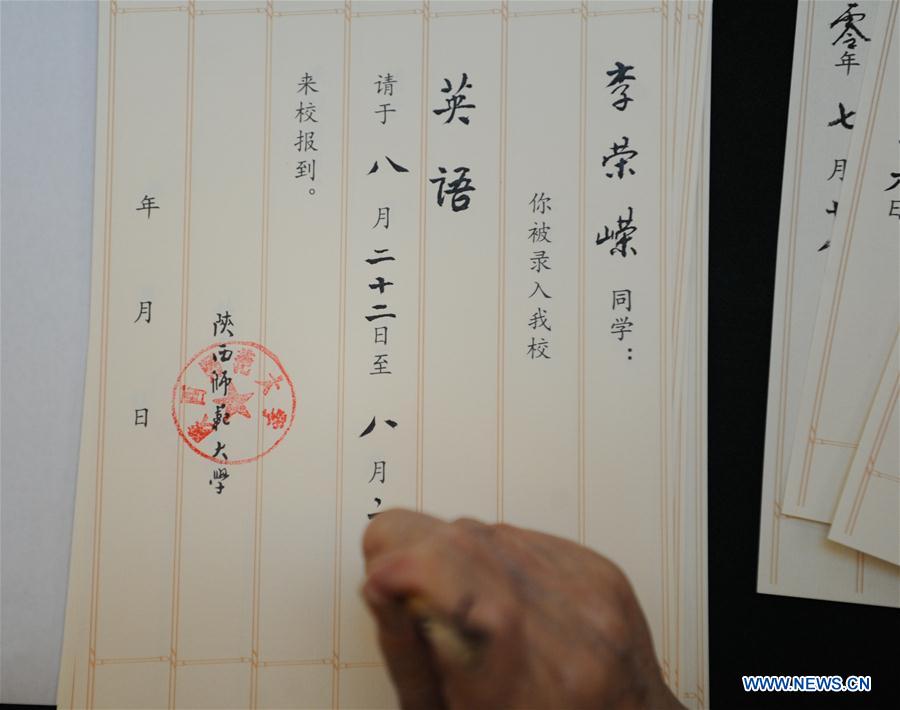 李荣嵘同学：
你被录入我校
英语
请于八月二十二日至八月二
来校报到。
陕西师范大學
年月日
零年七月
WWW.NEWS.CN